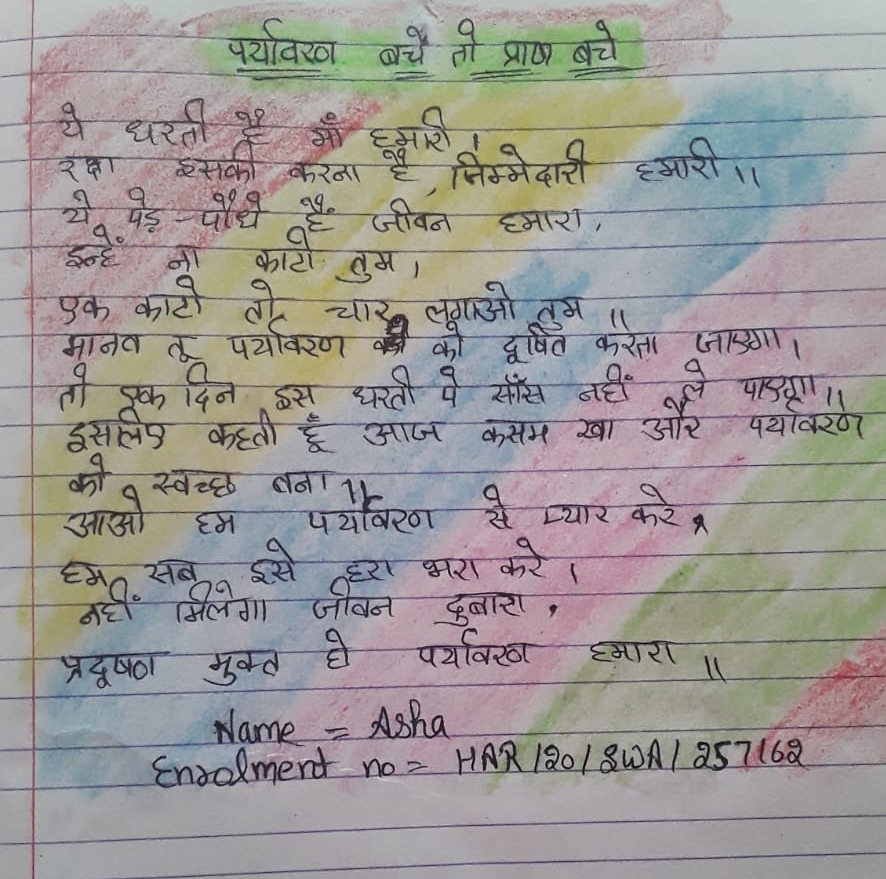 पर्यावरण बचे तो प्राण बचे
ये धरती है माँ हमारी ।
रक्षा इसकी करना है , जिम्मेदारी हमारी ।।
ये पेड़ - पौधे हैं जीवन हमारा ,
इन्हें ना काटो तुम ,
एक काटो तो चार लगाओ तुम ॥
मानव तू पर्यावरण को दूषित करता जाएगा ,
तो एक दिन इस धरती पे साँस नहीं ले पाएगा ।।
इसलिए कहती हूँ आज कसम खा और पर्यावरण
को स्वच्छ बना ।।
आओ हम पर्यावरण से प्यार करे ,
हम सब इसे हरा भरा करे ।
नहीं मिलेगा जीवन दुबारा ,
प्रदूषण मुक्त हो पर्यावरण हमारा ॥
Name = Asha
Enrolment no = HAR/20/SWA/257162